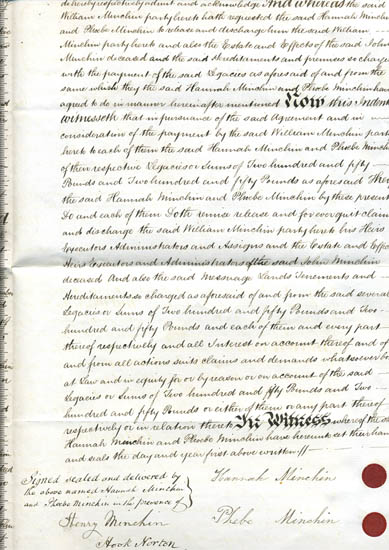 respectively adent and acknowledge And whereas the said
William Minchin party hereto hath requested the said Hannah Minchin
and Phebe Minchin to release and discharge him the said William
Minchin party hereto and also the Estate and Effects of the said John
Minchin deceased and the said Hereditaments and premises so charge
with the payment of the said Legacies as aforesaid of and from the
same which they the said Hannah Minchin and Phebe Minchin have
agreed to do in manner hereinafter mentioned Now this Inden
witnesseth that in pursuance of the said Agreement and in
consideration of the payment by the said William Minchin part
hereto to each of them the said Hannah Minchin and Phebe Minchin
of their respective Legacies or Sums of Two hundred and fifty
Pounds and Two hundred and fifty Pounds as aforesaid They
the said Hannah Minchin and Phebe Minchin by these present
Do and each of them Doth remise release and for ever quit claim
and discharge the said William Minchin party hereto his Heirs
Executors Administrators and Assigns and the Estate and Effec
Heirs Executors and Administrators of the said John Minchin
deceased And also the said Messuage Lands Tenements and
Hereditaments so charged as aforesaid of and from the said several
Legacies or Sums of Two hundred and fifty Pounds and Two
hundred and fifty Pounds and each of them and every part
thereof respectively and all Interest on account thereof and of
and from all actions suits claims and demands whatsoever bo
at Law and in equity for or by reason or on account of the said
Legacies or Sums of Two hundred and fifty Pounds and Two
hundred and fifty Pounds or either of them or any part thereof
respectively or in relation thereto In Witness whereof the sa
Hannah Minchin and Phebe Minchin have hereunto set their han
and seals the day and year first above written
Signed sealed and delivered by
the above named Hannah Minchin
and Phebe Minchin in the presence of
Hannah Minchin
Henry Minchin
Phebe Minchin
Hook Norton